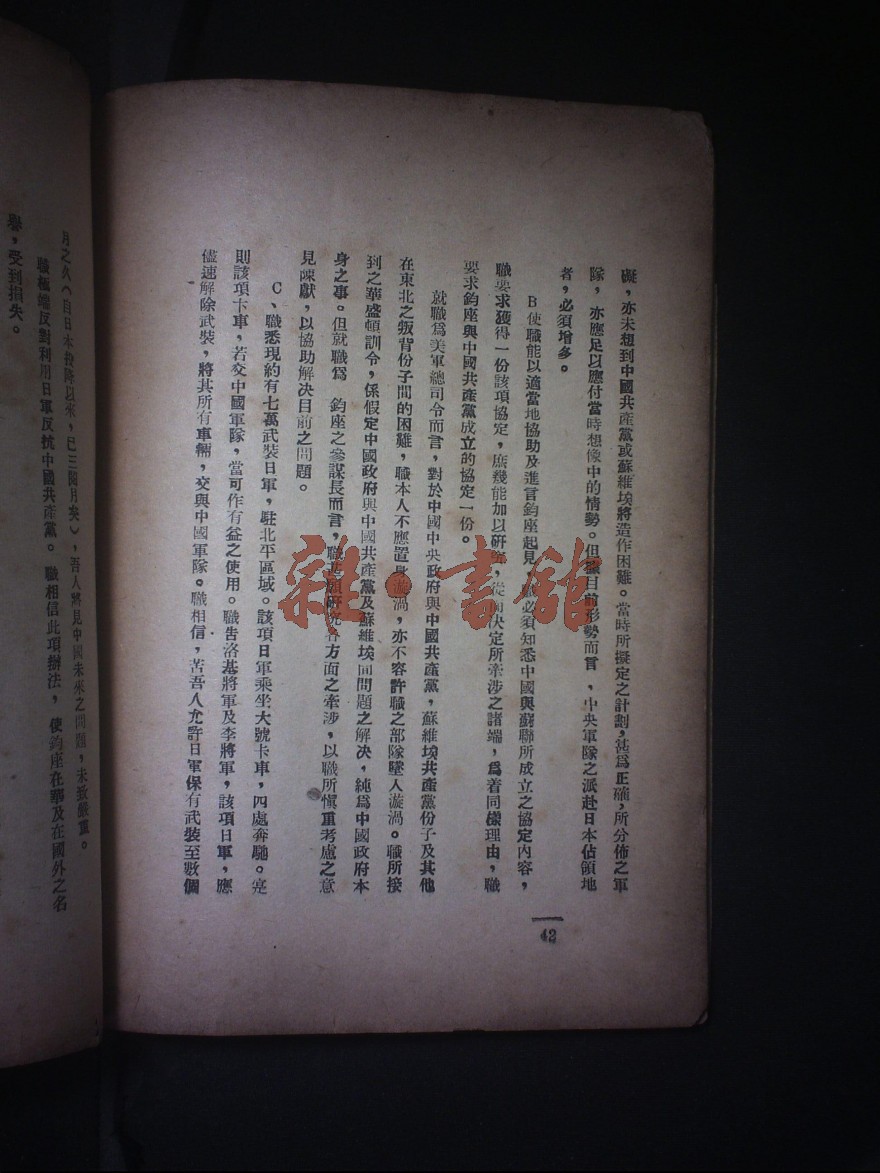 礙，亦未想到中國共產黨或蘇維埃將造作困難。當時所擬定之計劃，甚爲正確，所分佈之軍
隊，亦應足以應付當時想像中的情勢。但就目前形勢而言，中央軍隊之派赴日本佔領地
者，必須增多。
B使職能以適當地協助及進言鈞座起見，職必須知悉中國與蘇聯所成立之協定內容，
職要求獲得一份該項協定，庶幾能加以研究，從而決定所牽涉之諸端，爲着同樣理由，職
要求鈞座與中國共產黨成立的協定一份。
就職爲美軍總司令而言，對於中國中央政府與中國共產黨，蘇維埃共產黨份子及其他
在東北之叛背份子間的困難，職本人不應置身漩渦，亦不容許職之部隊墜人漩渦。職所接
到之華盛頓訓令，係假定中國政府與中國共產黨及蘇維埃間問題之解决，純爲中國政府本
身之事。但就職爲　鈞座之參謀長而言，職甚願研究各方面之牽涉，以職所愼重考慮之意
見陳獻，以協助解决目前之問題。
C、職悉現約有七萬武裝日軍，駐北平區域。該項日軍乘坐大號卡車，四處奔馳。
則該項卡車，若交中國軍隊，當可作有益之使用。職告洛基將軍及李將軍，該項日軍，應
儘速解除武裝，將其所有車輛，交與中國軍隊。職相信，若吾人允許日軍保有武裝至數個
42
月之久（自日本投降以來，已三閱月矣），吾人將見中國未來之問題，未致嚴重。
職極端反對利用日軍反抗中國共產黨。職相信此項辦法，使鈞座在華及在國外之名
譽，受到損失。
雜·書館